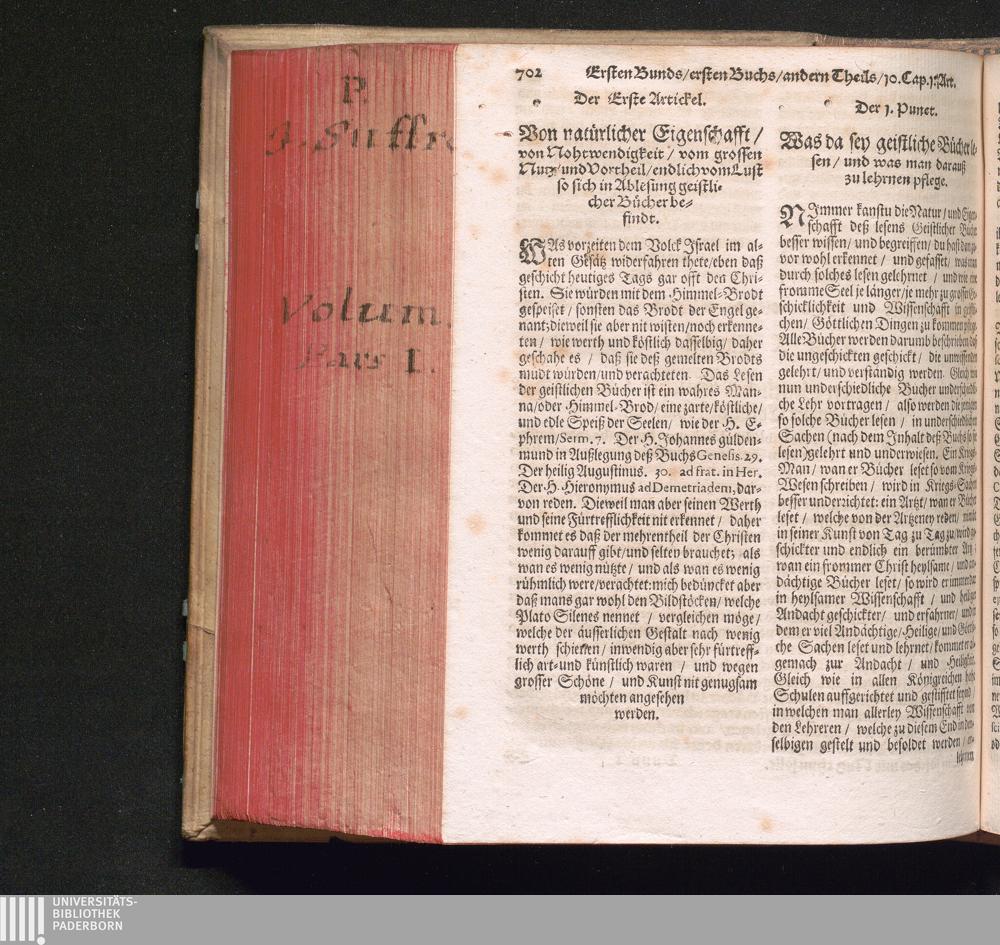 P.
J. Suffr
Volum.
Pars I.
702 Ersten Bunds/ersten Buchs/andern Theils/10. Cap. 1. Art.
Der Erste Artickel.
Von natürlicher Eigenschafft/
von Nohtwendigkeit/ vom grossen
Nutz/ und Vortheil/ endlich vom Lust
so sich in Ablesung geistli-
cher Bücher be-
findt.
WAs vorzeiten dem Volck Israel im al-
ten Gesätz widerfahren thete/eben daß
geschicht heutiges Tags gar offt den Chri-
sten. Sie würden mit dem Himmel-Brodt
gespeiset/ sonsten das Brodt der Engel ge-
nant; dieweil sie aber nit wisten/noch erkenne-
ten/ wie werth und köstlich dasselbig/ daher
geschahe es/ daß sie deß gemelten Brodts
mudt würden/und verachteten. Das Lesen
der geistlichen Bücher ist ein wahres Man-
na/oder Himmel-Brod/ eine zarte/köstliche/
und edle Speiß der Seelen/ wie der H. E-
phrem/Serm. 7. Der H. Johannes gülden-
mund in Außlegung deß Buchs Genesis. 29.
Der heilig Augustinus. 30. ad frat. in Her.
Der H. Hieronymus ad Demetriadem, dar-
von reden. Dieweil man aber seinen Werth
und seine Fürtrefflichkeit nit erkennet/ daher
kommet es daß der mehrentheil der Christen
wenig darauff gibt/und selten brauchet; als
wan es wenig nützte/ und als wan es wenig
rühmlich were/verachtet: mich bedüncket aber
daß mans gar wohl den Bildstöcken/ welche
Plato Silenes nennet/ vergleichen möge/
welche der äusserlichen Gestalt nach wenig
werth schienen/ inwendig aber sehr fürtreff-
lich art- und künstlich waren/ und wegen
grosser Schöne/ und Kunst nit genugsam
möchten angesehen
werden.
Der 1. Punct.
Was da sey geistliche Bücher le-
sen/ und was man darauß
zu lehrnen pflege.
NImmer kanstu die Natur/ und Eigen-
schafft deß lesens Geistlicher Bücher
besser wissen/ und begreiffen/ du hast dan
vor wohl erkennet/ und gefasset/ was man
durch solches lesen gelehrnet/ und wie eine
fromme Seel je länger/je mehr zu grosser Ge-
schicklichkeit und Wissenschafft in geistli-
chen/ Göttlichen Dingen zu kommen pfleg.
Alle Bücher werden darumb beschrieben daß
die ungeschickten geschickt/ die unwissenden
gelehrt/ und verständig werden. Gleich wie
nun underschiedliche Bücher underschiedli-
che Lehr vortragen/ also werden die jenigen
so solche Bücher lesen/ in underschiedlichen
Sachen (nach dem Inhalt deß Buchs so sie
lesen) gelehrt und underwiesen. Ein Kriegs-
Man/ wan er Bücher leset so vom Kriegs-
Wesen schreiben/ wird in Kriegs-Sachen
besser underzichtet: ein Artzt/ wan er Bücher
leset/ welche von der Artzeney reden/
in seiner Kunst von Tag zu Tag zu/ wird ge-
schickter und endlich ein berümbter Artz:
wan ein frommer Christ heylsame/ und an-
dächtige Bücher leset/ so wird er immerdar
in heylsamer Wissenschafft/ und heiliger
Andacht geschickter/ und erfahrner/ und in
dem er viel Andächtige/ Heilige/ und Göttli-
che Sachen leset und lehrnet/ kommet er
gemach zur Andacht/ und Heiligkeit.
Gleich wie in allen Königreichen hohe
Schulen auffgerichtet und gestifftet seynd/
in welchen man allerley Wissenschafft von
den Lehreren/ welche zu diesem End in den-
selbigen gestelt und besoldet werden/ er-
lehrnen
UNIVERSITÄTS-
BIBLIOTHEK
PADERBORN